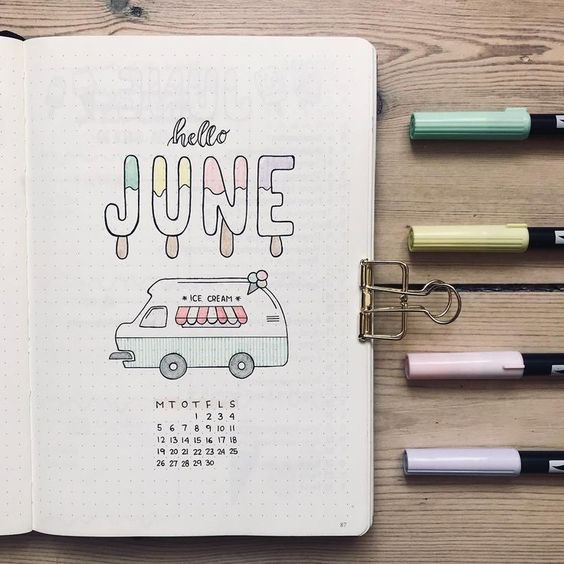 hello
JUNE
* ICE CREAM *
M T O T F L S
1 2 3 4
5 6 7 8 9 10 11
12 13 14 15 16 17 18
19 20 21 22 23 24 25
26 27 28 29 30
87